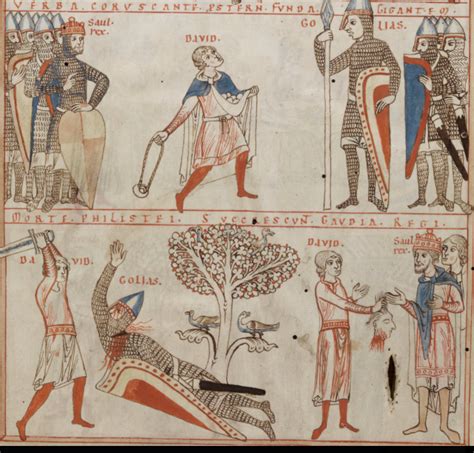 VERBA CORVSCANTE PSTERN. FVNDA GIGANTEM
SAUL
REX.
DAVID.
GO
LIAS.
MORTE PHILISTEI. SVCCRESCVN. GAVDIA REGI.
DA VID.
GOLIAS.
DAVID.
SAUL
REX.